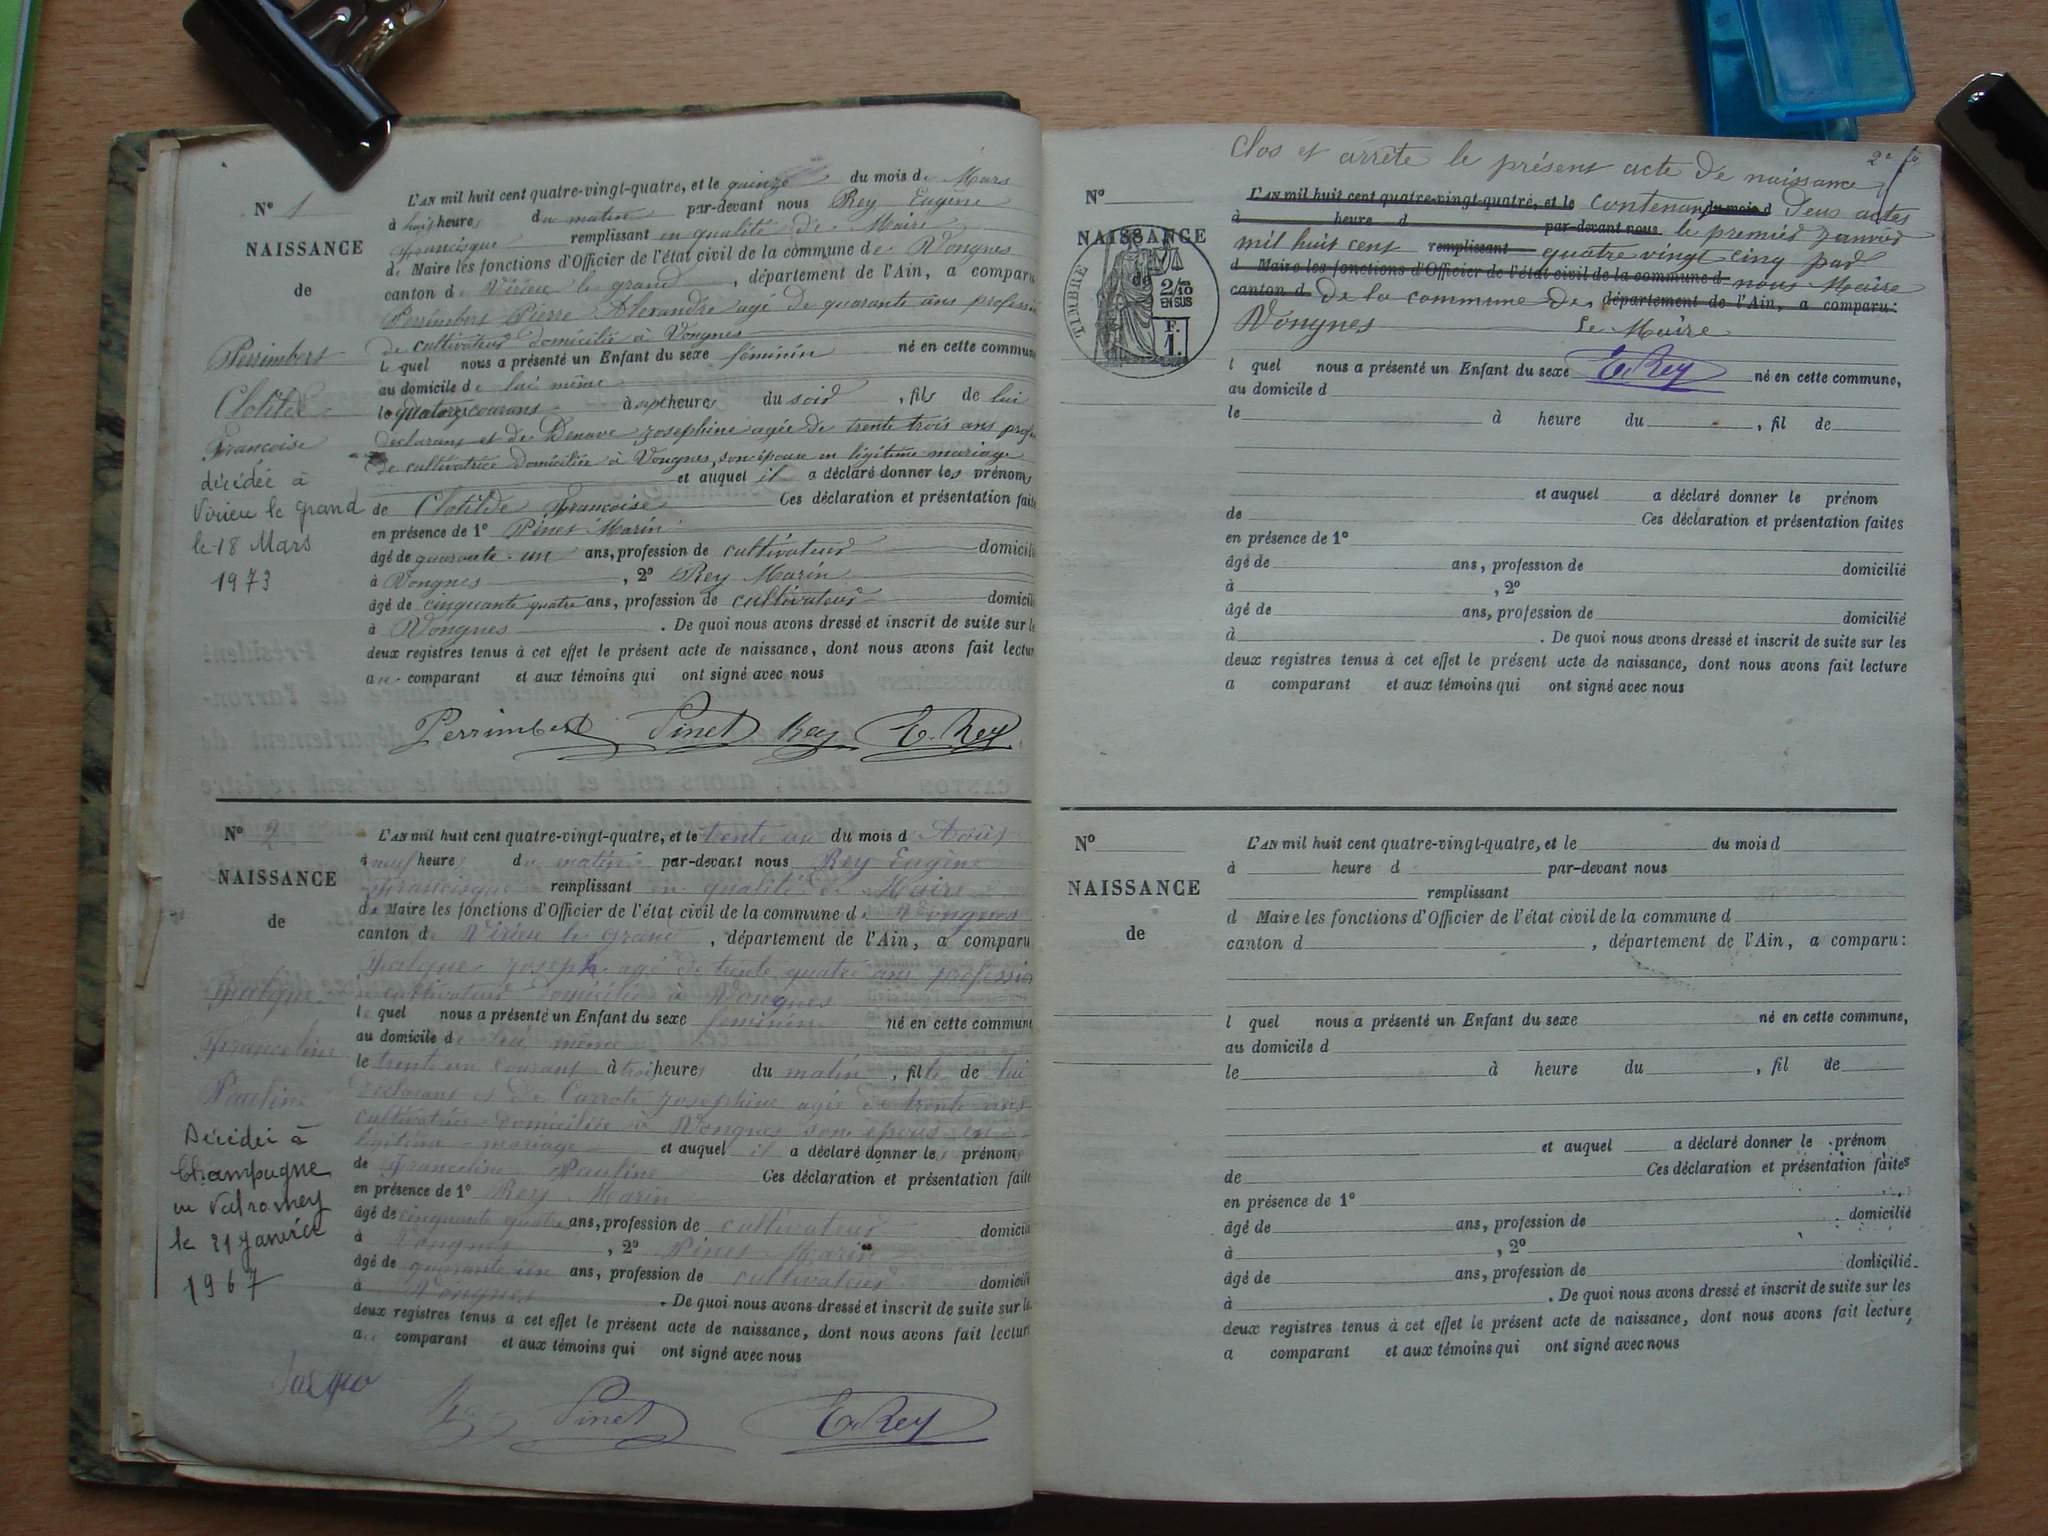 N° 1
NAISSANCE
de
Perrimbert
Clotilde
Françoise
décédée à
Virieu le Grand
le 18 Mars
1973
L'AN mil huit cent quatre-vingt-quatre, et le quinze du mois de Mars
à huit heures du matin par-devant nous Rey Eugène
Francisque remplissant en qualité de Maire
de Maire les fonctions d'Officier de l'état civil de la commune de Vongnes
canton de Virieu le grand, département de l'Ain, a comparu
Perrimbert Pierre Alexandre agé de quarante ans professi
de cultivateur domicilié à Vongnes
lequel nous a présenté un Enfant du sexe féminin né en cette commune
au domicile de lui même
le quatorze courant à sept heures du soir, fils de lui
déclarant et de Benave Josephine agée de trente trois ans profes
de cultivatrice domiciliée à Vongnes, son épouse en légitime mariage
et auquel il a déclaré donner les prénoms
de Clotilde Françoise Ces déclaration et présentation faite
en présence de 1° Pinet Marin
âgé de quarante-un ans, profession de cultivateur domicili
à Vongnes, 2° Rey Marin
âgé de cinquante quatre ans, profession de cultivateur domicili
à Vongnes. De quoi nous avons dressé et inscrit de suite sur le
deux registres tenus à cet effet le présent acte de naissance, dont nous avons fait lectur
au comparant et aux témoins qui ont signé avec nous
Perrimbert Pinet Rey E. Rey
N° 2
NAISSANCE
de
Franceline
Pauline
Décédée à
Champagne
en Valromey
le 21 janvier
1967
L'AN mil huit cent quatre-vingt-quatre, et le trente un du mois d'Août
à neuf heures du matin par-devant nous Rey Eugène
Francisque remplissant en qualité de Maire
de Maire les fonctions d'Officier de l'état civil de la commune de Vongnes
canton de Virieu le grand, département de l'Ain, a comparu
Joseph agé de trente quatre ans professio
de cultivateur domicilié à Vongnes
lequel nous a présenté un Enfant du sexe féminin né en cette commune
au domicile de lui même
le trente un courant à trois heures du matin, fille de lui
déclarant et de Carrote Josephine agée de trente ans
cultivatrice domiciliée à Vongnes son épouse en
légitime mariage et auquel il a déclaré donner les prénoms
de Franceline Pauline Ces déclaration et présentation faite
en présence de 1° Rey Marin
âgé de cinquante quatre ans, profession de cultivateur domicili
à Vongnes, 2° Pinet Marin
âgé de quarante un ans, profession de cultivateur domicili
à Vongnes. De quoi nous avons dressé et inscrit de suite sur le
deux registres tenus à cet effet le présent acte de naissance, dont nous avons fait lectur
au comparant et aux témoins qui ont signé avec nous
Pinet E. Rey
Clos et arrêté le présent acte de naissance
2e
N°
NAISSANCE
de
TIMBRE
2/10
EN SUS
F.
1.
L'AN mil huit cent quatre-vingt-quatre, et le contenant du mois d deux actes
à heure d par-devant nous le premier janvier
mil huit cent remplissant quatre vingt cinq par
d Maire les fonctions d'Officier de l'état civil de la commune d nous Maire
canton d de la commune de département de l'Ain, a comparu:
Vongnes Le Maire
l quel nous a présenté un Enfant du sexe E. Rey né en cette commune,
au domicile d
le à heure du , fil de
et auquel a déclaré donner le prénom
de Ces déclaration et présentation faites
en présence de 1°
âgé de ans, profession de domicilié
à , 2°
âgé de ans, profession de domicilié
à . De quoi nous avons dressé et inscrit de suite sur les
deux registres tenus à cet effet le présent acte de naissance, dont nous avons fait lecture
a comparant et aux témoins qui ont signé avec nous
N°
NAISSANCE
de
L'AN mil huit cent quatre-vingt-quatre, et le du mois d
à heure d par-devant nous
remplissant
d Maire les fonctions d'Officier de l'état civil de la commune d
canton d , département de l'Ain, a comparu:
l quel nous a présenté un Enfant du sexe né en cette commune,
au domicile d
le à heure du , fil de
et auquel a déclaré donner le prénom
de Ces déclaration et présentation faites
en présence de 1°
âgé de ans, profession de domicilié
à , 2°
âgé de ans, profession de domicilié
à . De quoi nous avons dressé et inscrit de suite sur les
deux registres tenus à cet effet le présent acte de naissance, dont nous avons fait lecture,
a comparant et aux témoins qui ont signé avec nous